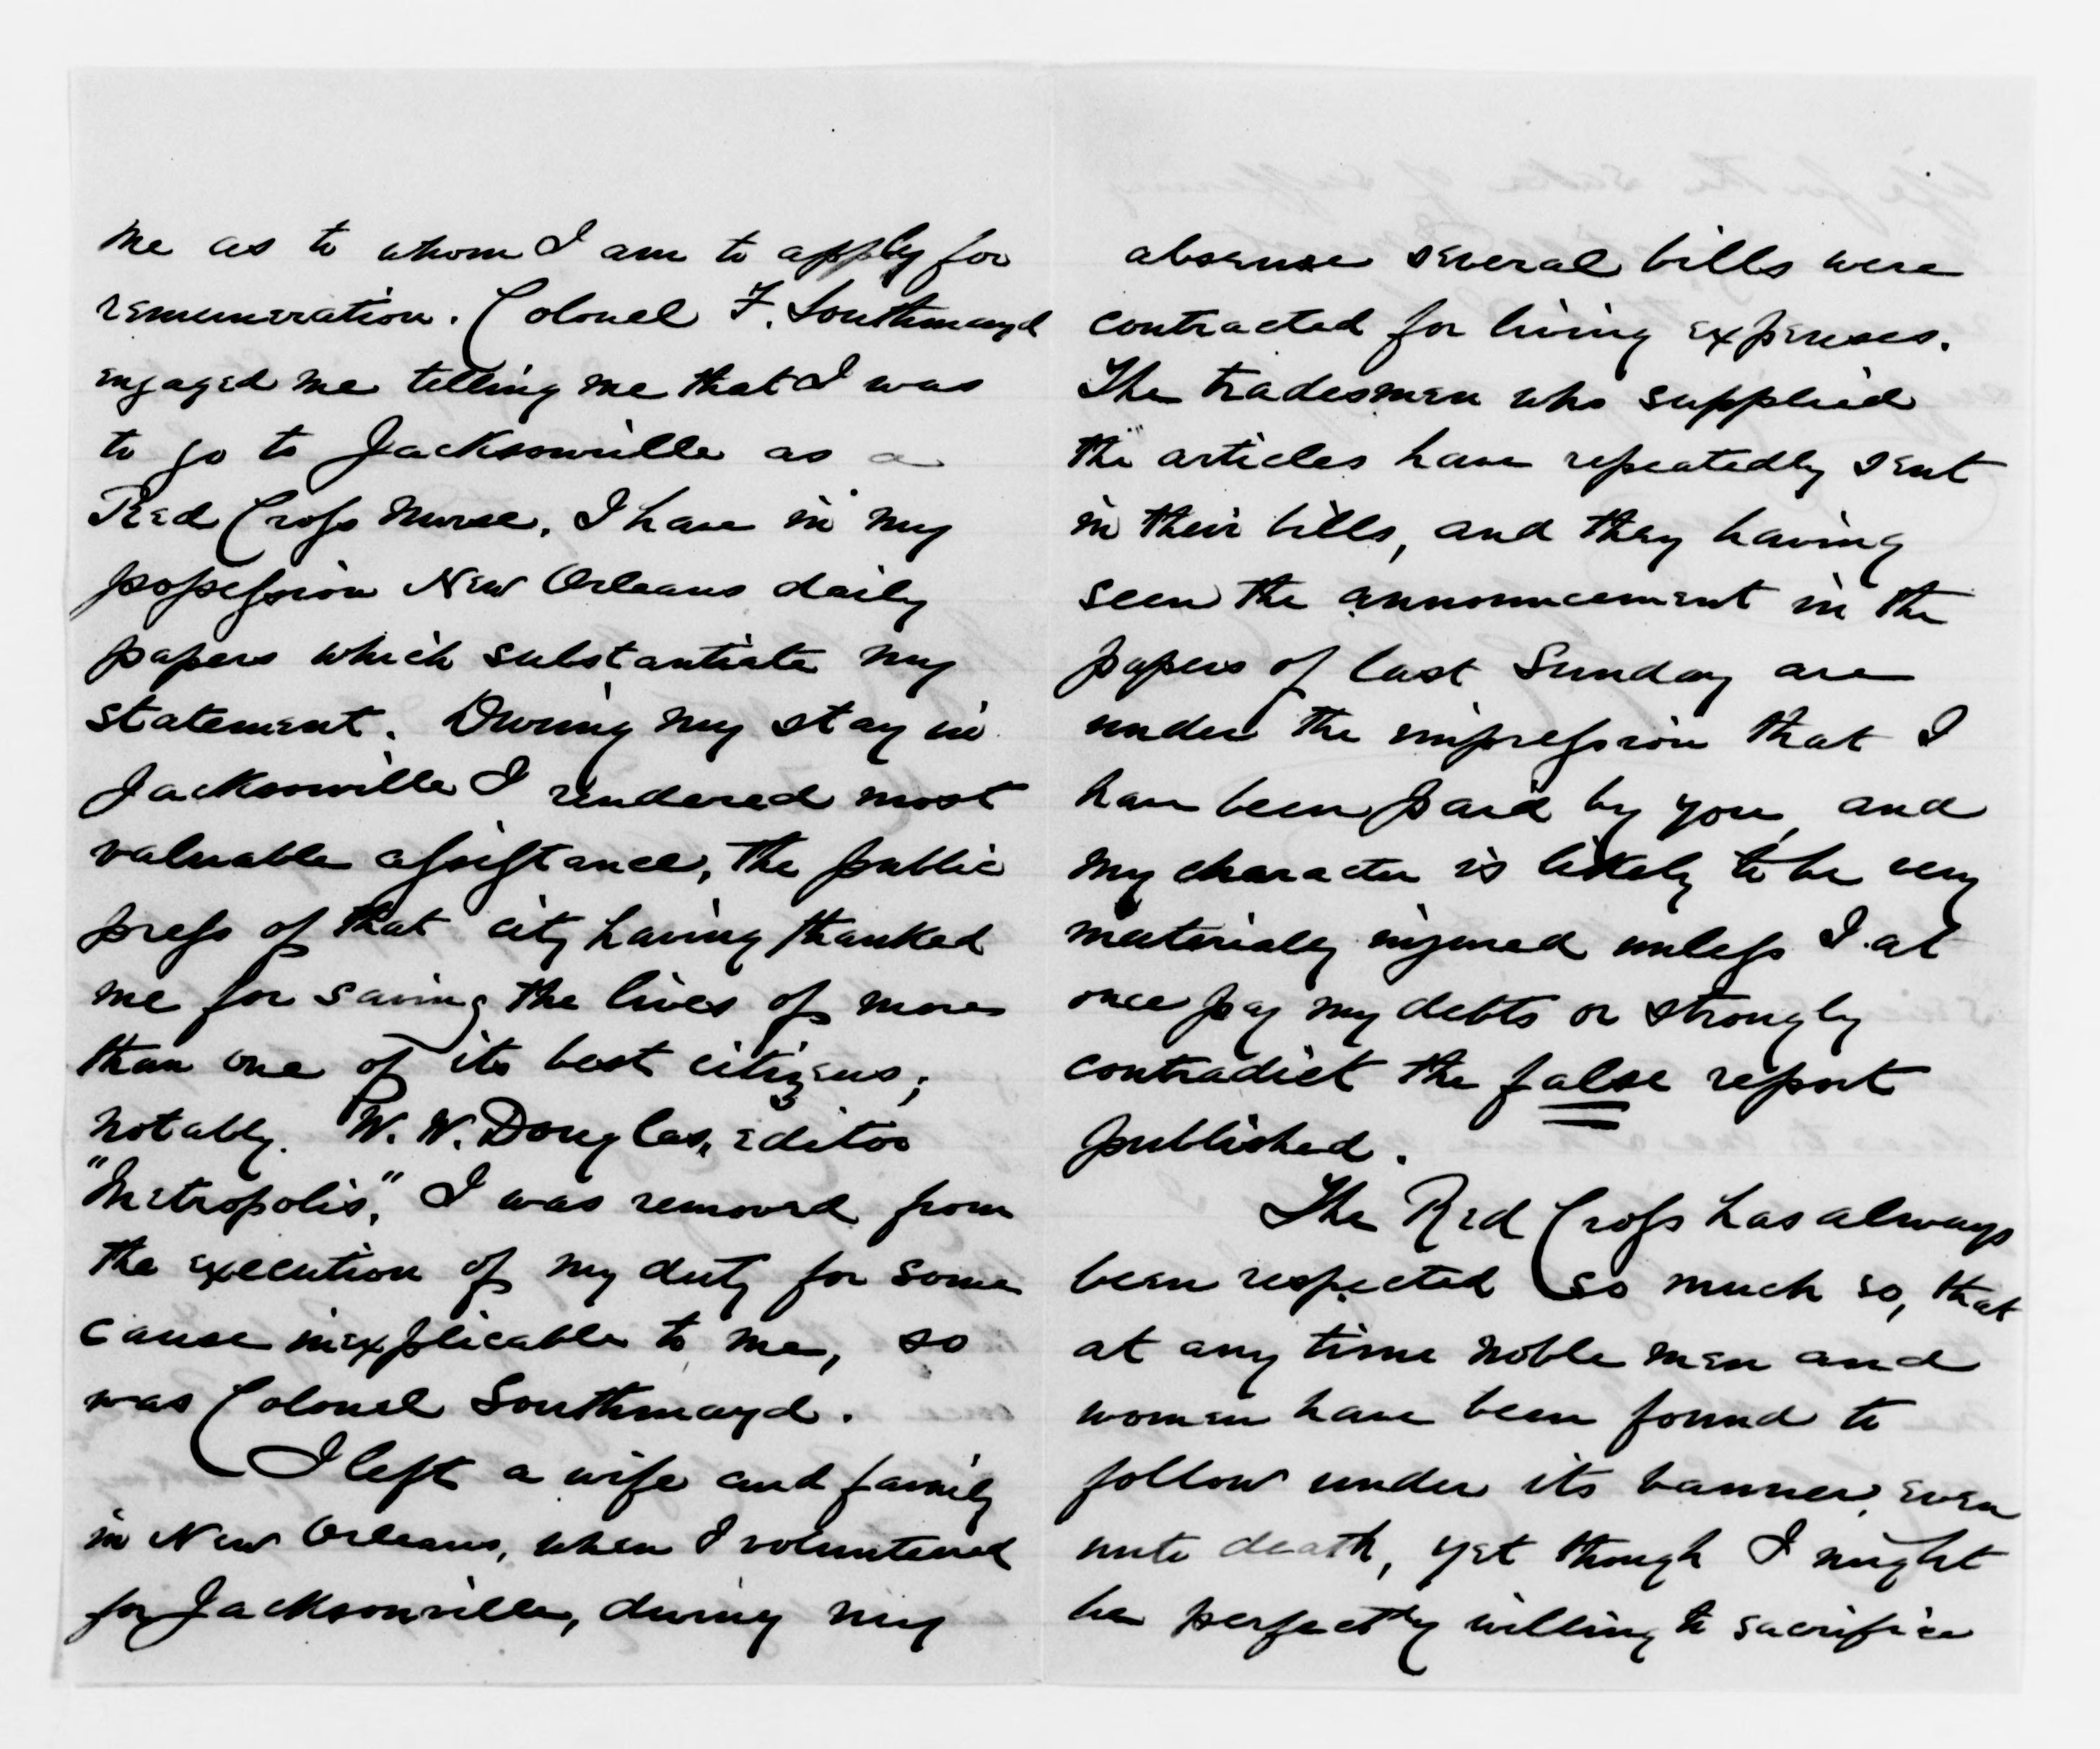 me as to whom I am to apply for
remuneration. Colonel F. Southmayd
engaged me telling me that I was
to go to Jacksonville as a
Red Cross Nurse, I have in my
possession New Orleans daily
papers which substantiate my
statement. During my stay in
Jacksonville I rendered most
valuable assistance, the public
press of that city having thanked
me for saving the lives of more
than one of its best citizens;
notably. W. W. Douglas, editor
"Metropolis," I was removed from
the execution of my duty for some
cause inexplicable to me, so
was Colonel Southmayd.
I left a wife and family
in New Orleans, when I volunteered
for Jacksonville, during my
absense several bills were
contracted for living expenses.
The tradesmen who supplied
the articles have repeatedly sent
in their bills, and they having
seen the announcement in the
papers of last Sunday are
under the impression that I
have been paid by you, and
my character is likely to be very
materialy injured unless I at
once pay my debts or strongly
contradict the false report
published.
The Red Cross has always
been respected so much so, that
at any time noble men and
women have been found to
follow under its banner, even
unto death, yet though I might
be perfectly willing to sacrifice